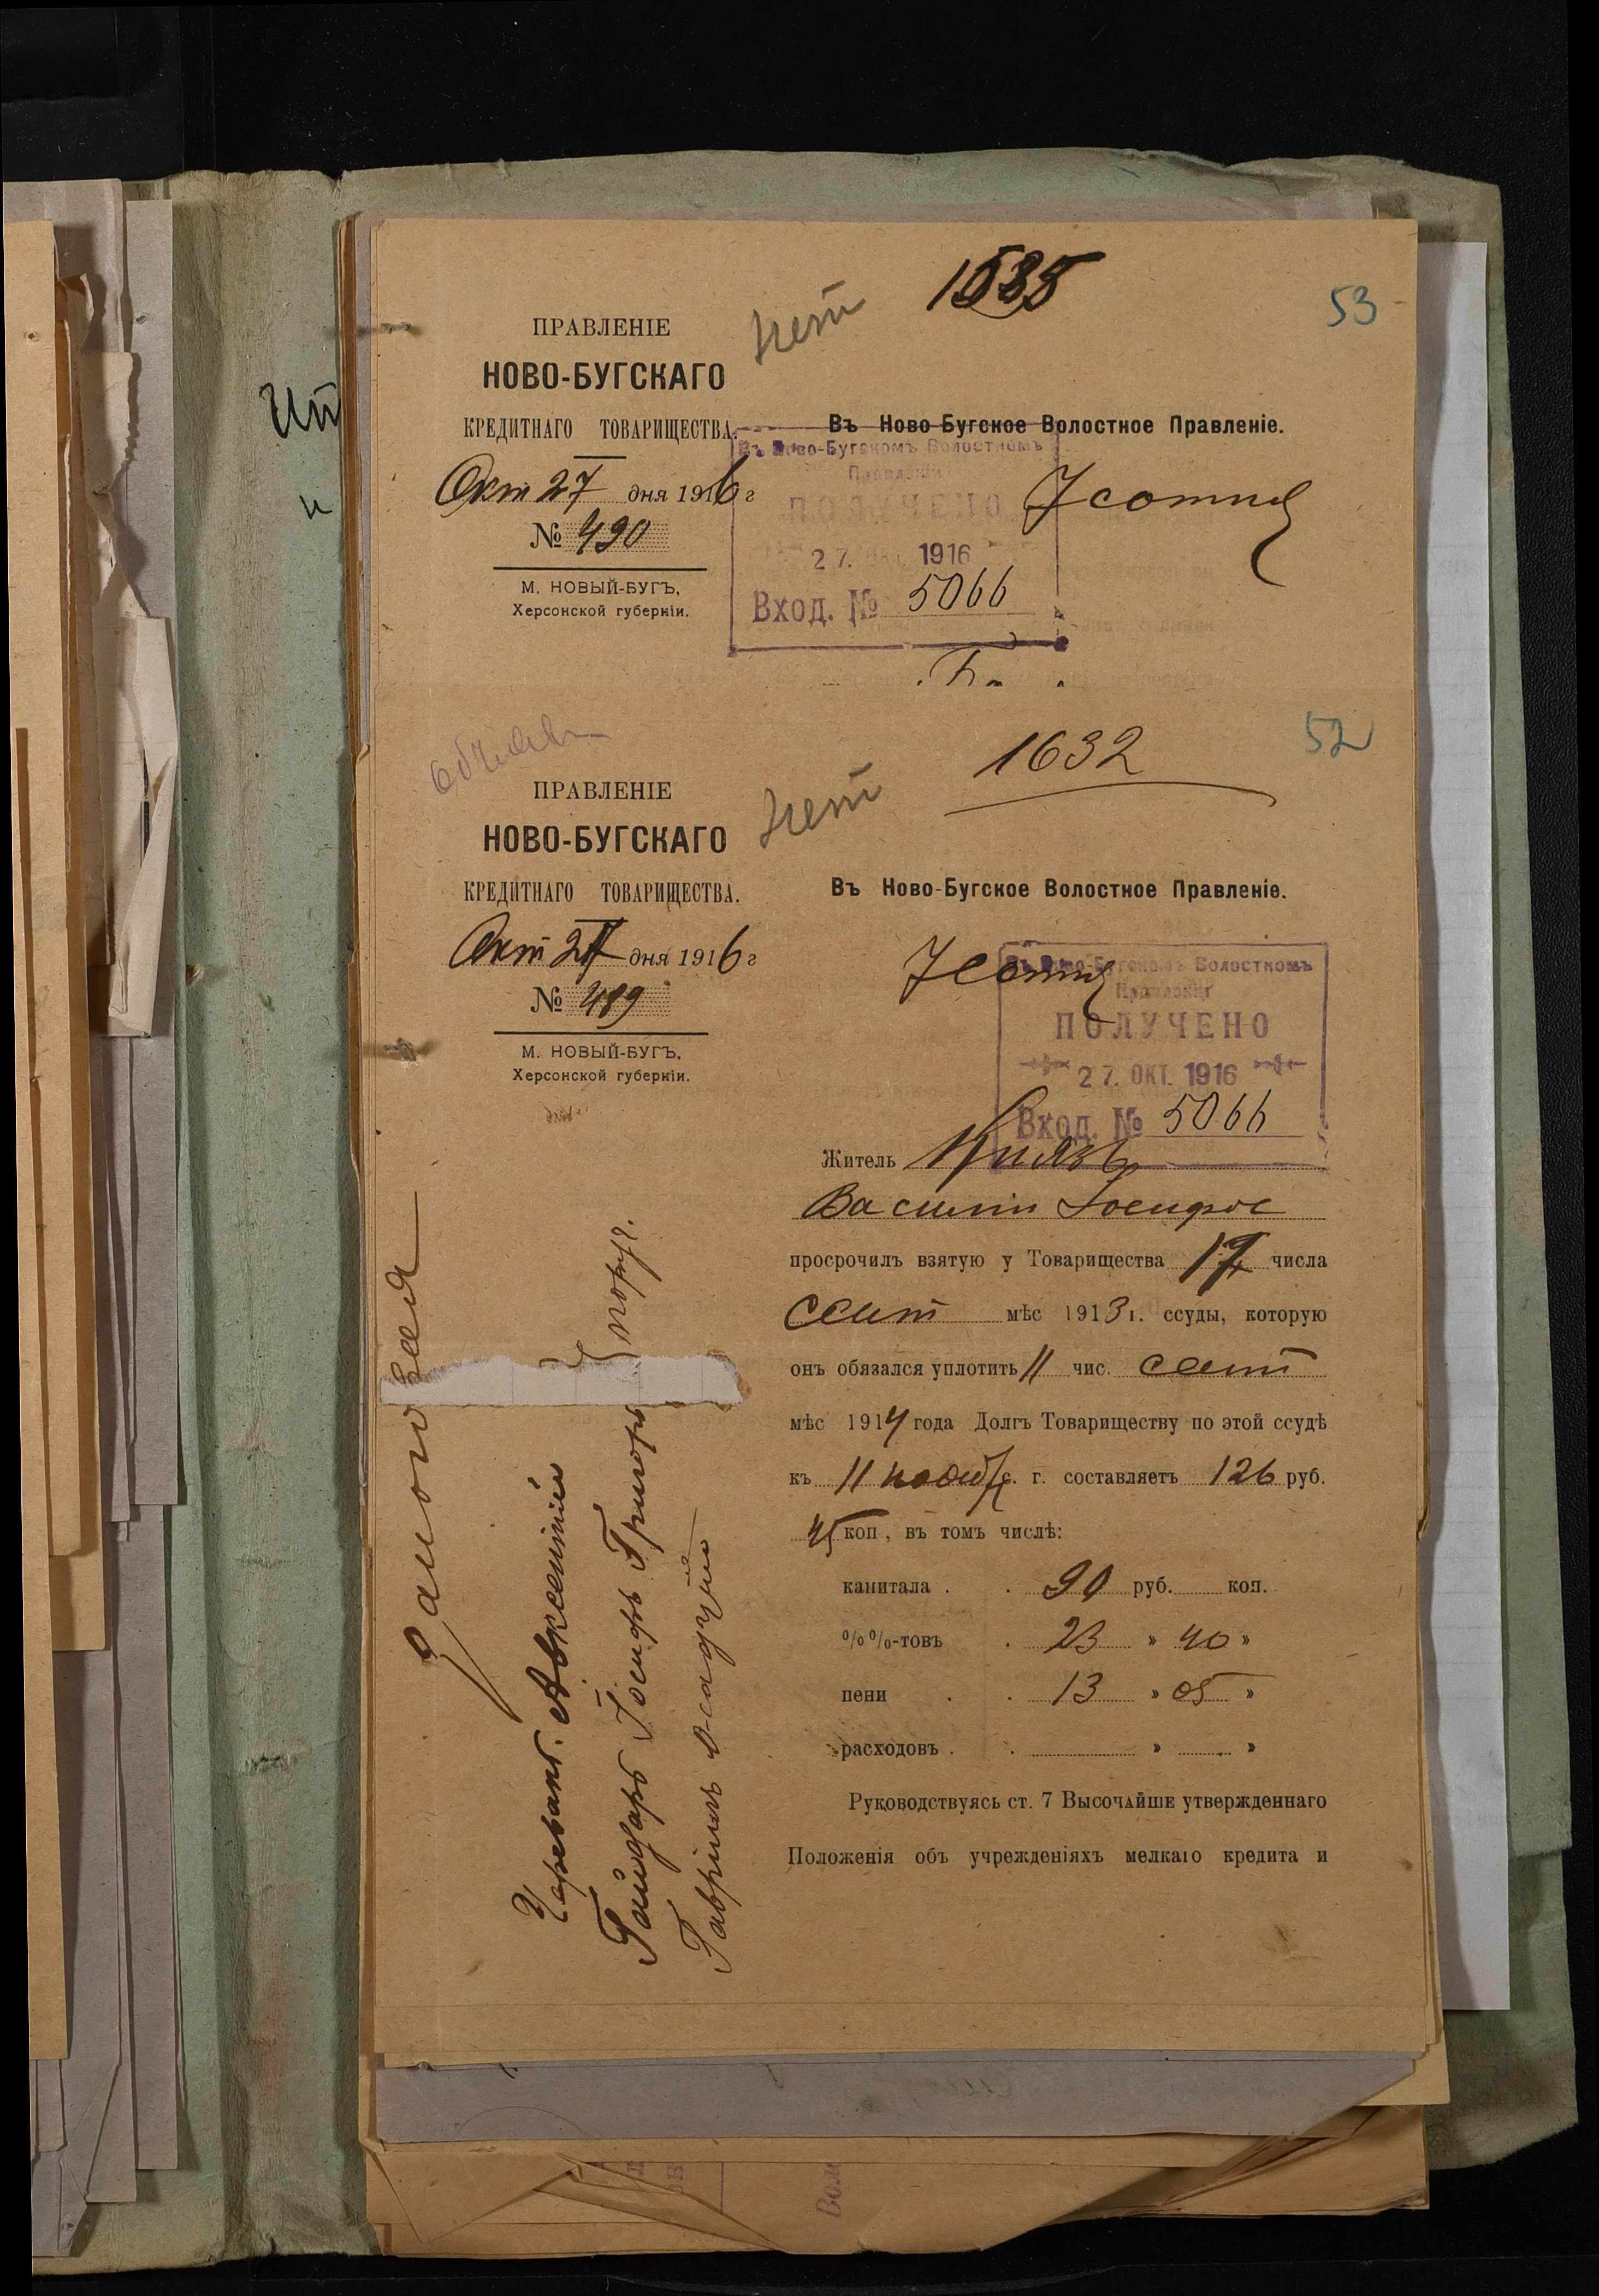 1635
53
нет
ПРАВЛЕНІЕ
НОВО-БУГСКАГО
КРЕДИТНАГО ТОВАРИЩЕСТВА.
Окт 27 дня 1916 г
№ 490
М. НОВЫЙ-БУГЪ,
Херсонской губерніи.
Въ Ново-Бугское Волостное Правленіе.
Въ Ново-Бугскомъ Волостномъ
Правленіи
ПОЛУЧЕНО
27. ОКТ. 1916
Вход. № 5066
1632
52
нет
ПРАВЛЕНІЕ
НОВО-БУГСКАГО
КРЕДИТНАГО ТОВАРИЩЕСТВА.
Окт 27 дня 1916 г
№ 489
М. НОВЫЙ-БУГЪ,
Херсонской губерніи.
Въ Ново-Бугское Волостное Правленіе.
Въ Ново-Бугскомъ Волостномъ
Правленіи
ПОЛУЧЕНО
27. ОКТ. 1916
Вход. № 5066
Житель Князь
Василій Іосифов
просрочилъ взятую у Товарищества числа
Сент мѣс 1913 г. ссуды, которую
онъ обязался уплотить 11 чис. сент
мѣс 1914 года Долгъ Товариществу по этой ссудѣ
къ 11 ноября с. г. составляетъ 126 руб.
45 коп, въ томъ числѣ:
капитала . . 90 руб. коп.
%%-товъ . 23 » 40 »
пени . . 13 » 05 »
расходовъ . . » »
Руководствуясь ст. 7 Высочайше утвержденнаго
Положенія объ учрежденіяхъ мелкаго кредита и
Авксентій
Гайдаръ Іосифъ Григорь
поруч.